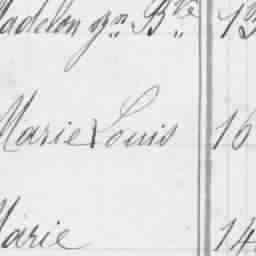 Madelon gn. Bve. 13
Marie Louis 16
Marie 14